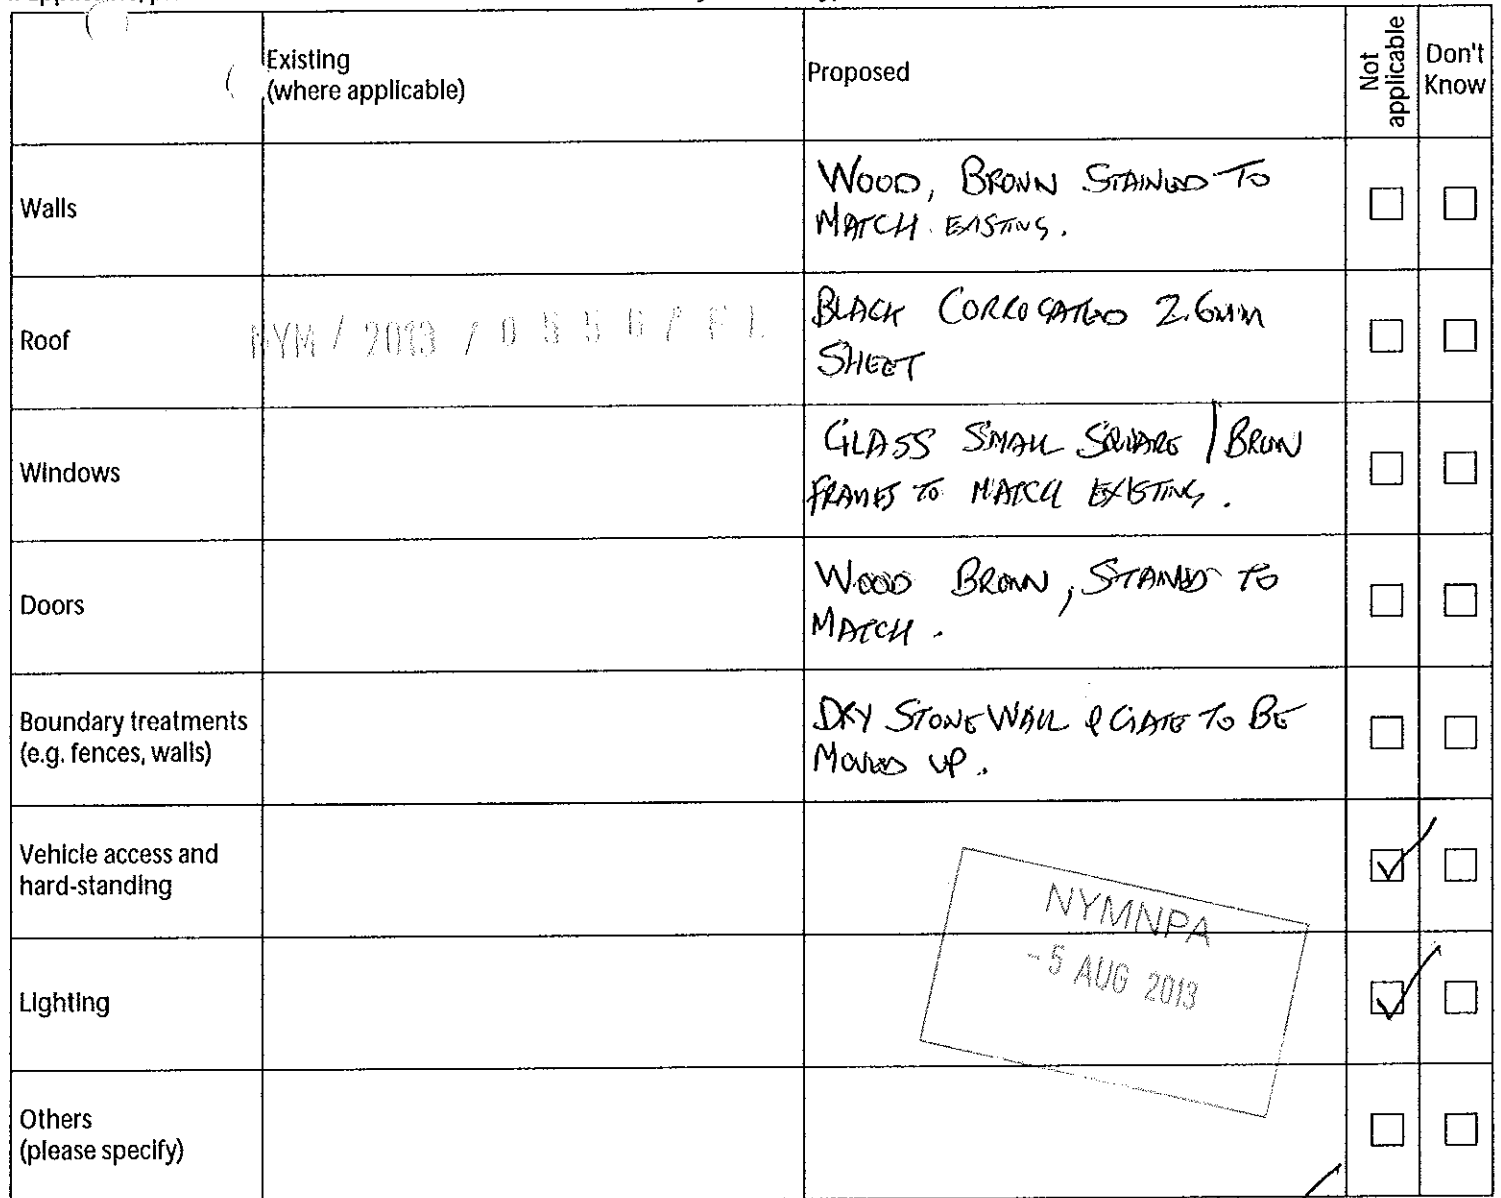 Existing
(where applicable)
Proposed
Not
applicable
Don't
Know
Walls
WOOD, BROWN STAINED TO
MATCH EXISTING.
Roof
NYM / 2013 / 0 5 5 0 / F L
BLACK CORROGATED 2.6mm
SHEET
Windows
GLASS SMALL SQUARE / BROWN
FRAMES TO MATCH EXISTING.
Doors
WOOD BROWN, STAINED TO
MATCH.
Boundary treatments
(e.g. fences, walls)
DRY STONE WALL & GATE TO BE
MOVED UP.
Vehicle access and
hard-standing
NYMNPA
-5 AUG 2013
Lighting
Others
(please specify)